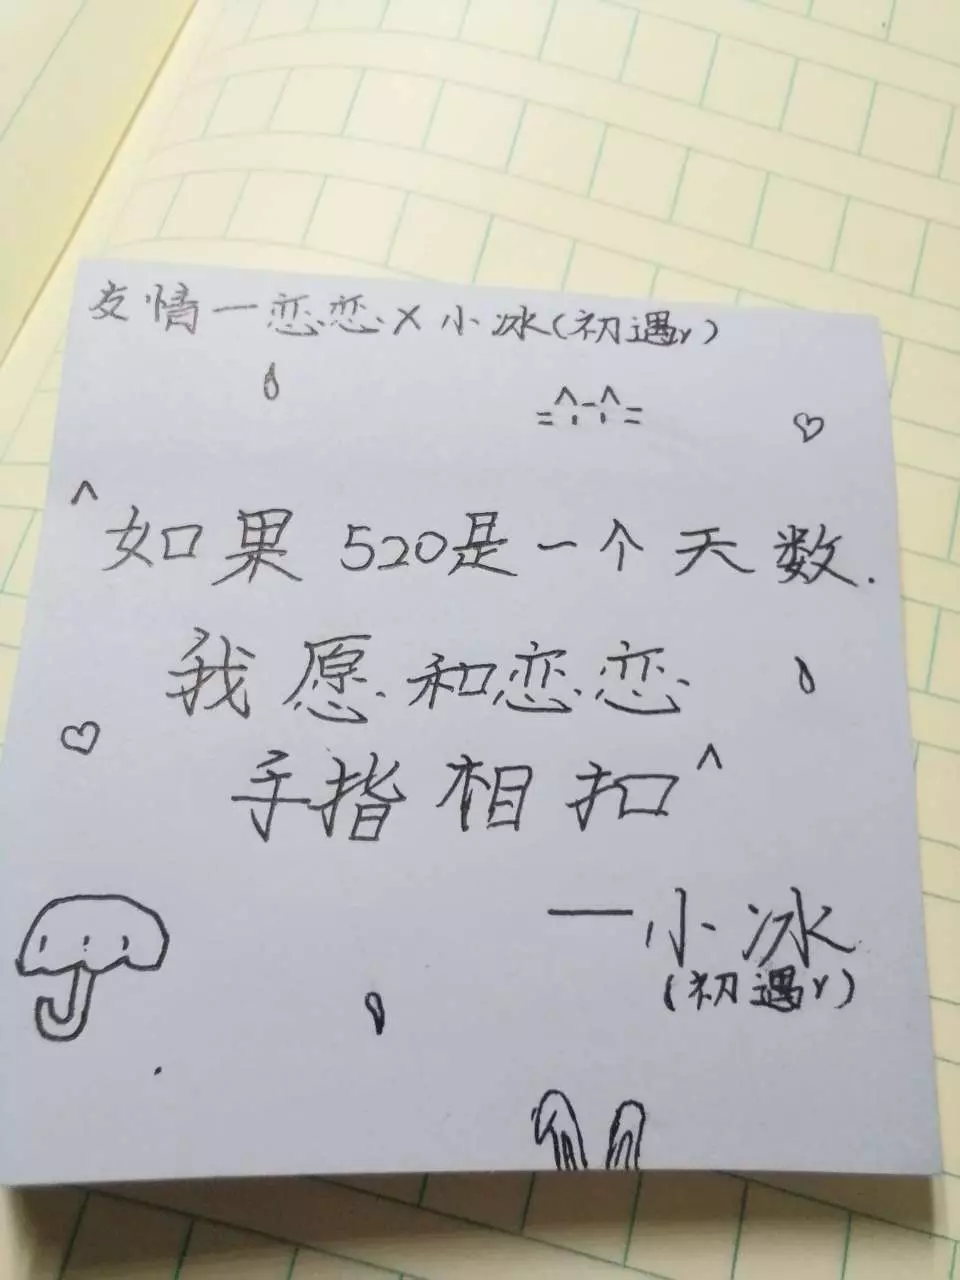 友情一恋恋×小冰(初遇y)
=^-^=
^如果520是一个天数.
我愿和恋恋
手指相扣^
—小冰
(初遇y)